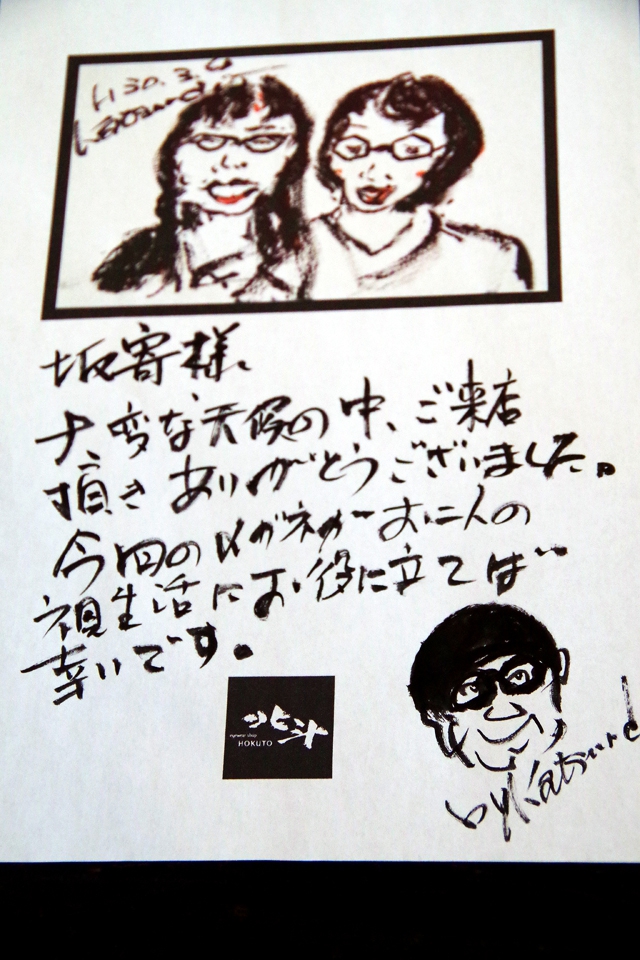 H30.3.6
坂寄様、
大変な天候の中、ご来店
頂き ありがとうございました。
今回のメガネが お二人の
視生活に お役に立てば
幸いです。
北斗
eyewear shop
HOKUTO
by Katsura